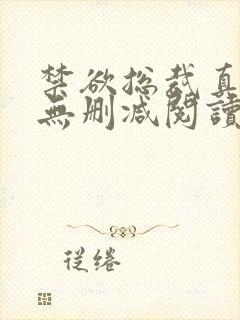 禁欲总裁真
無删减閱讀
從绻